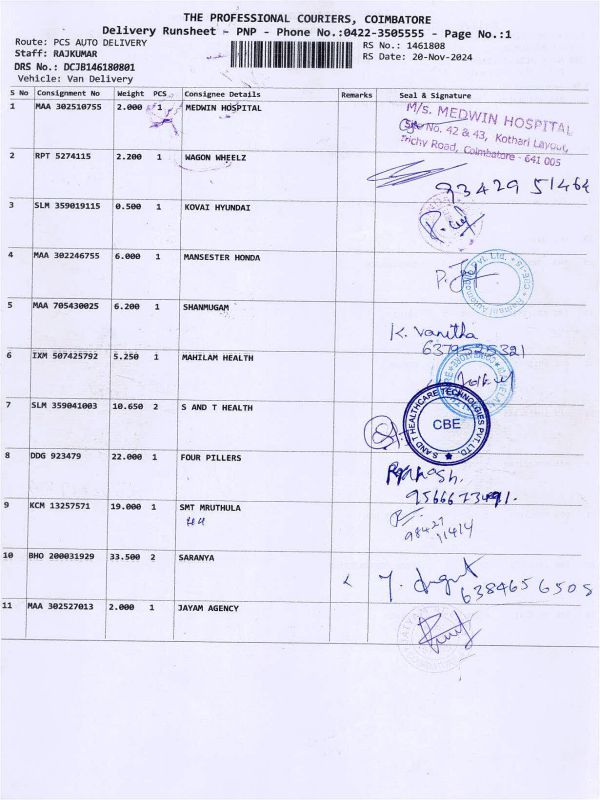 THE PROFESSIONAL COURIERS, COIMBATORE
Delivery Runsheet - PNP - Phone No.:0422-3505555 - Page No.:1
Route: PCS AUTO DELIVERY
RS No.: 1461808
Staff: RAJKUMAR
RS Date: 20-Nov-2024
DRS No.: DCJB146180801
Vehicle: Van Delivery
S No Consignment No Weight PCS Consignee Details Remarks Seal & Signature
1 MAA 302510755 2.000 1 MEDWIN HOSPITAL
M/s. MEDWIN HOSPITAL
No. 42 & 43, Kothari Layout,
Trichy Road, Coimbatore - 641 005
2 RPT 5274115 2.200 1 WAGON WHEELZ
93429 51464
3 SLM 359019115 0.500 1 KOVAI HYUNDAI
4 MAA 302246755 6.000 1 MANSESTER HONDA
5 MAA 705430025 6.200 1 SHANMUGAM
K. Vanitha
6379525321
6 IXM 507425792 5.250 1 MAHILAM HEALTH
7 SLM 359041003 10.650 2 S AND T HEALTH
S AND T HEALTHCARE TECHNOLOGIES PVT. LTD.
CBE
8 DDG 923479 22.000 1 FOUR PILLERS
9566673491.
9 KCM 13257571 19.000 1 SMT MRUTHULA
98427
11414
10 BHO 200031929 33.500 2 SARANYA
6384656505
11 MAA 302527013 2.000 1 JAYAM AGENCY